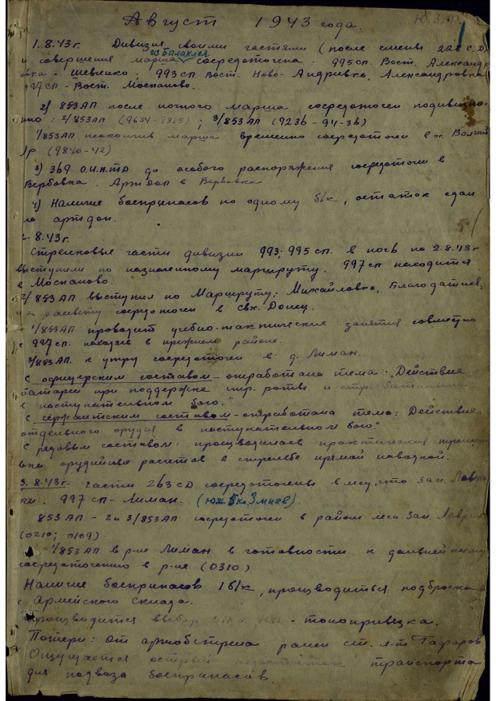 Август 1943 года.
1.8.43г. Дивизия своими частями (после смены 228 С.Д.
из Балаклея
и совершения марша) сосредоточена 995 сп. Вост. Александ
ровка - Шевченко; 993 сп Вост. Ново-Андривка, Александровка
997 сп - Вост. Моспаново.
2) 853 АП после ночного марша сосредоточен подивизио
нно: 2/853 АП ; 3/853 АП (9236-94-36)
1/853 АП неокончив марша временно сосредоточен в х. Волчий
Яр (9840-42)
3) 369 О.И.П.ТД до особого распоряжения сосредоточен в
Вербовка. Артдоп в Вербовка
4) Наличие боеприпасов по одному б/к., остаток сдан
на артдоп.
2.8.43г.
Стрелковые части дивизии 993, 995 сп. в ночь на 2.8.43г
выступили по назначенному маршруту. 997 сп находится
в Моспаново.
2/853 АП выступил по Маршруту: Михайловка, Благодатное,
к рассвету сосредоточен в свх. Донец.
1/853 АП проводит учебно-тактические занятия совместно
с 997 сп. находясь в прежнем районе.
3/853 АП. к утру сосредоточен в д. Лиман.
С офицерским составом - отработана тема: "Действие
батареи при поддержке стр. роты и стр. батальона
в наступательном бою."
С сержантским составом - отработана тема: Действие
отдельного орудия в наступательном бою"
С рядовым составом: производилась практическая трениро
вка орудийных расчетов в стрельбе прямой наводкой.
3.8.43г. Части 263 СД сосредоточены в лесу, что зап. Лаври
997 сп - Лиман. (юж. 5 км Змиев).
853 АП - 2 и 3/853 АП сосредоточен в районе леса зап. Лаври
(0210; 0109)
1/853 АП в р-не Лиман в готовности к дальнейшему
сосредоточению в р-не (0310)
Наличие боеприпасов 1 б/к, производиться подброска
с Армейского склада.
Производится - топопривязка.
Потери: От артобстрела ранен ст. л-т
Ощущается острый транспорта
для подвоза боеприпасов.